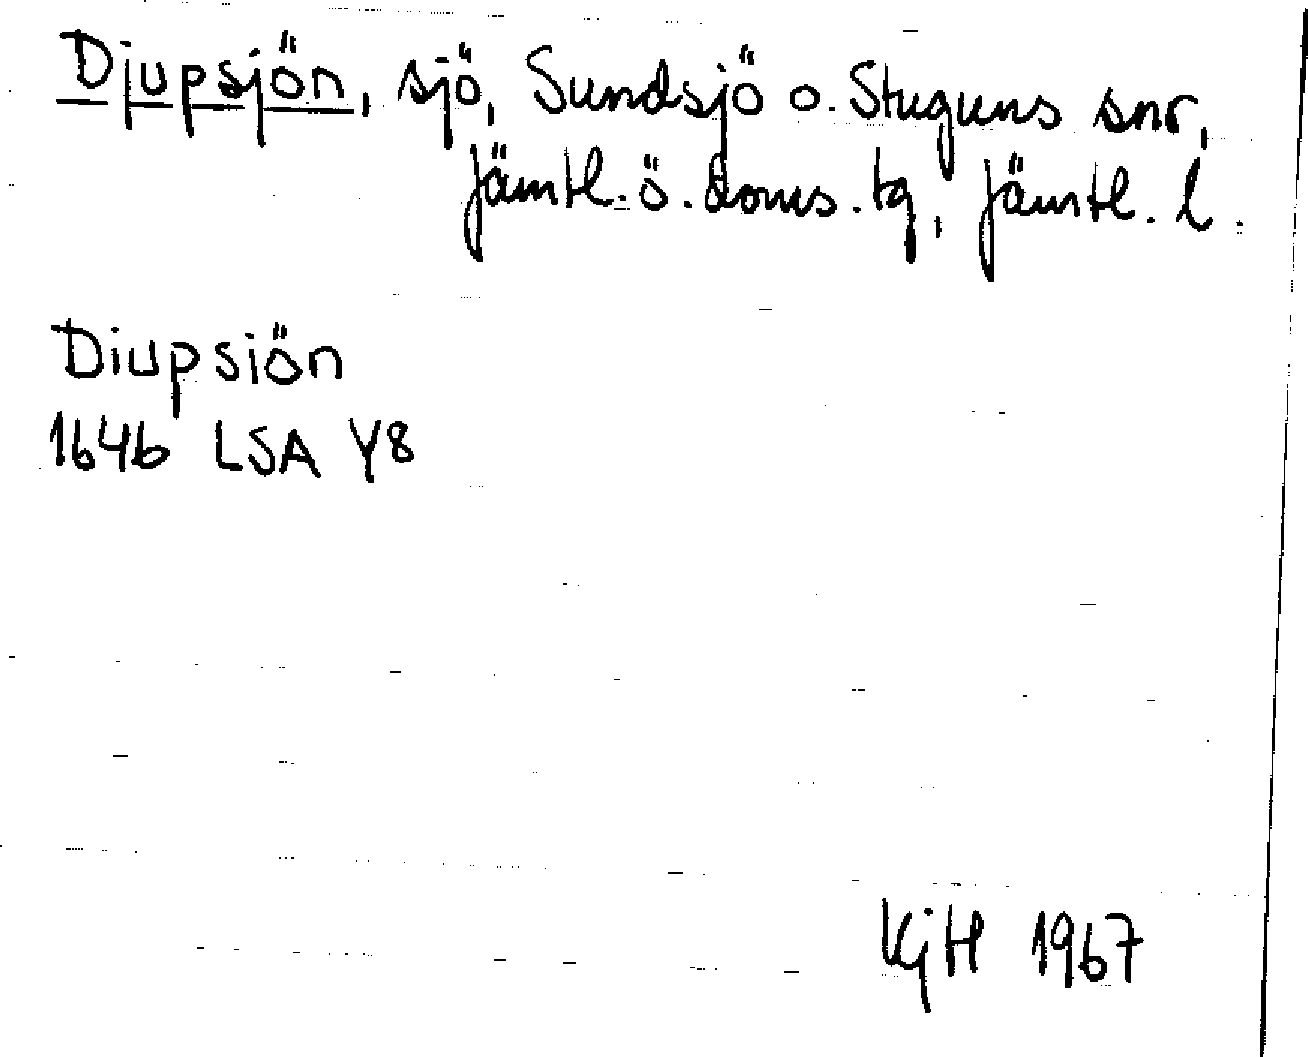 Djupsjön, sjö, Sundsjö o. Stuguns snr,
Jämtl. ö. doms. tg, Jämtl. l.
Diupsiön
1646 LSA Y8
KjH 1967